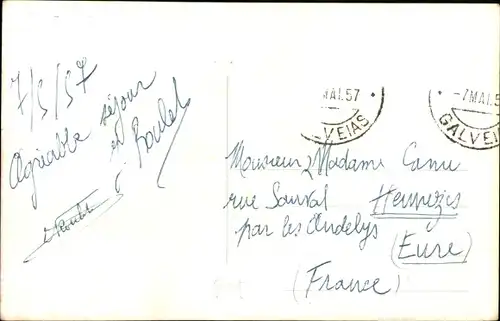 7/5/57
Agréable séjour
et
MAI.57
VEIAS
-7 MAI.5
GALVEI
Monsieur, Madame
rue Sauval Hennezis
par les Andelys
(Eure)
(France)